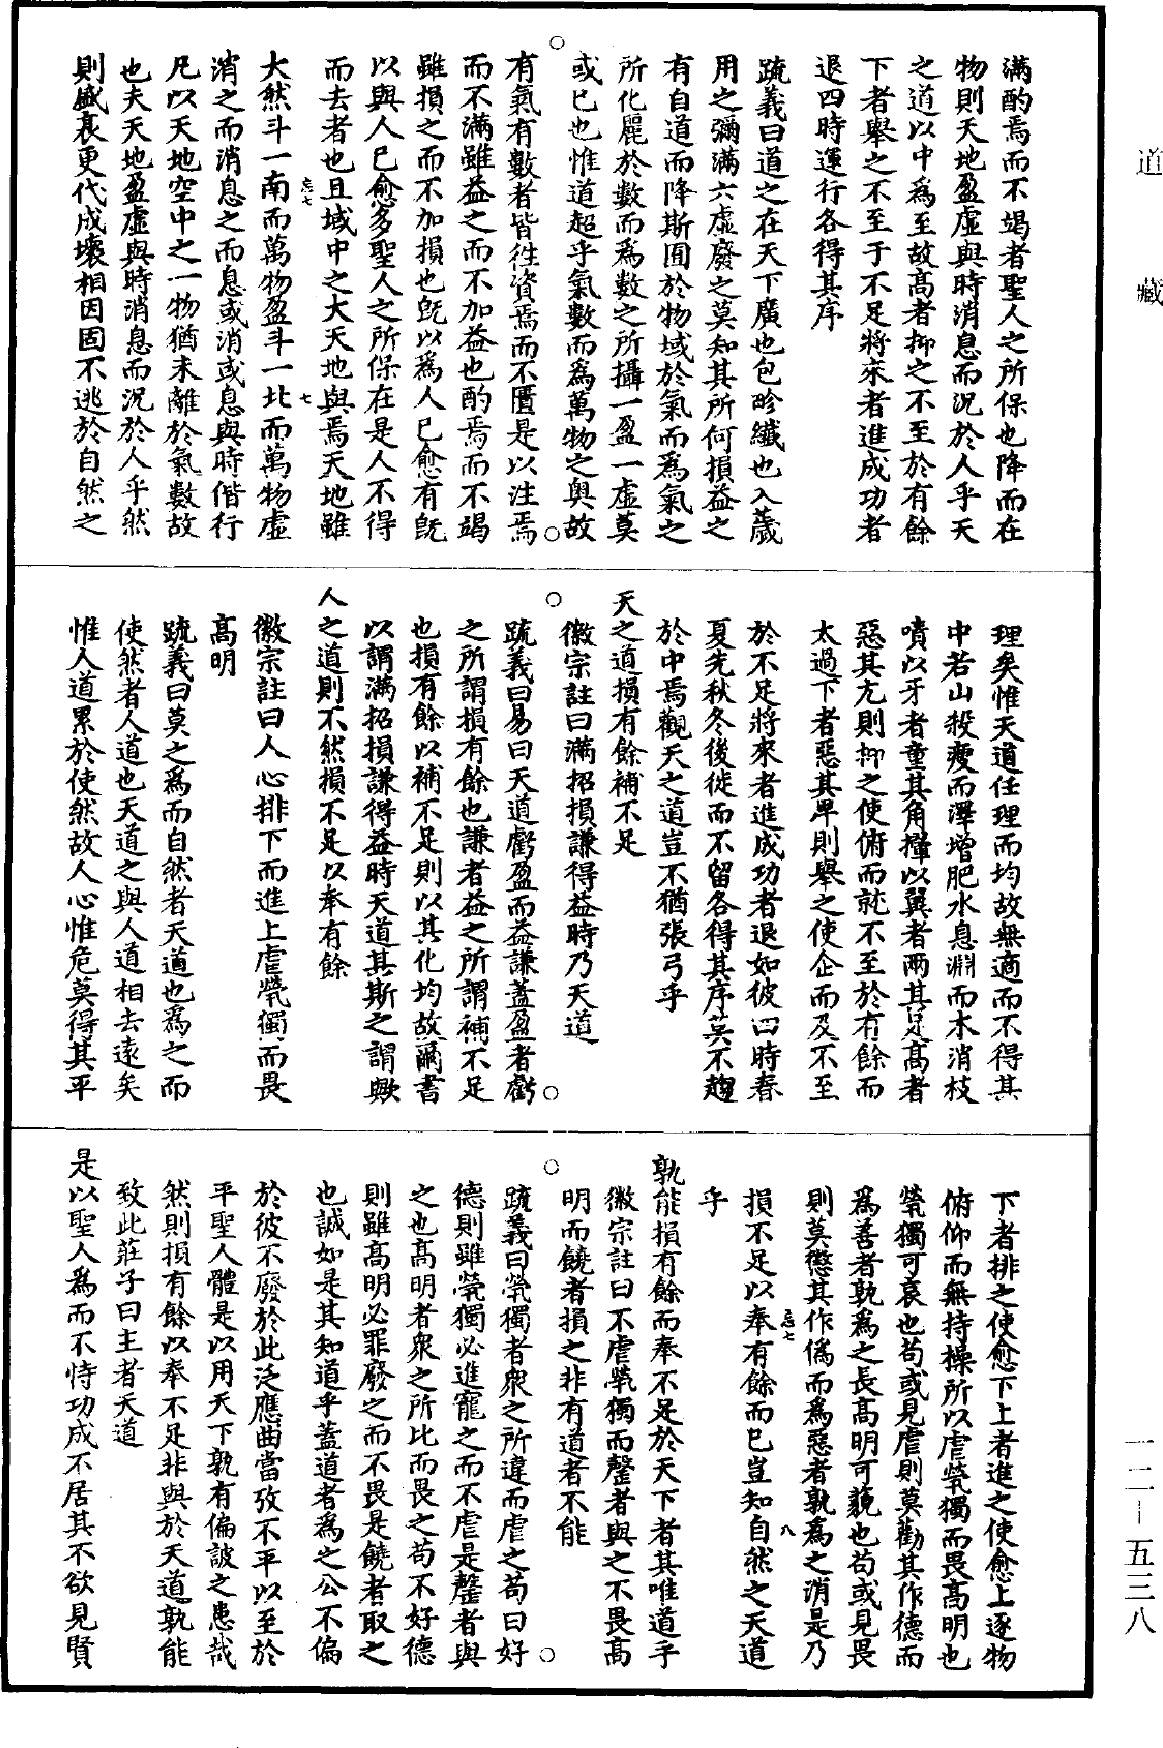 道藏
滿酌焉而不竭者聖人之所保也降而在
物則天地盈虛與時消息而況於人乎天
之道以中為至故高者抑之不至於有餘
下者舉之不至于不足將來者進成功者
退四時運行各得其序
疏義曰道之在天下廣也包畛纖也入薉
用之彌滿六虛廢之莫知其所何損益之
有自道而降斯囿於物域於氣而為氣之
所化麗於數而為數之所攝一盈一虛莫
或已也惟道超乎氣數而為萬物之奧故
有氣有數者皆徃資焉而不匱是以注焉
而不滿雖益之而不加益也酌焉而不竭
雖損之而不加損也旣以為人已愈有旣
以與人已愈多聖人之所保在是人不得
而去者也且域中之大天地與焉天地雖
大然斗一南而萬物盈斗一北而萬物虛
消之而消息之而息或消或息與時偕行
凡以天地空中之一物猶未離於氣數故
也夫天地盈虛與時消息而況於人乎然
則盛衰更代成壞相因固不逃於自然之
理矣惟天道任理而均故無適而不得其
中若山殺瘦而澤增肥水息淵而木消枝
嘖以牙者童其角攆以翼者兩其足高者
惡其亢則抑之使俯而就不至於有餘而
太過下者惡其卑則舉之使企而及不至
於不足將來者進成功者退如彼四時春
夏先秋冬後徙而不留各得其序莫不趨
於中焉觀天之道豈不猶張弓乎
天之道損有餘補不足
徽宗註曰滿招損謙得益時乃天道
疏義曰易曰天道虧盈而益謙蓋盈者虧
之所謂損有餘也謙者益之所謂補不足
也損有餘以補不足則以其化均故爾書
以謂滿招損謙得益時天道其斯之謂歟
人之道則不然損不足以奉有餘
徽宗註曰人心排下而進上虐煢獨而畏
高明
疏義曰莫之為而自然者天道也為之而
使然者人道也天道之與人道相去遠矣
惟人道累於使然故人心惟危莫得其平
下者排之使愈下上者進之使愈上逐物
俯仰而無持操所以虐煢獨而畏高明也
煢獨可哀也苟或見虐則莫勸其作德而
為善者孰為之長高明可藐也苟或見畏
則莫懲其作偽而為惡者孰為之消是乃
損不足以奉有餘而已豈知自然之天道
乎
孰能損有餘而奉不足於天下者其唯道乎
徽宗註曰不虐煢獨而罄者與之不畏高
明而饒者損之非有道者不能
疏義曰煢獨者衆之所違而虐之苟曰好
德則雖煢獨必進寵之而不虐是罄者與
之也高明者衆之所比而畏之苟不好德
則雖高明必罪廢之而不畏是饒者取之
也誠如是其知道乎蓋道者為之公不偏
於彼不廢於此泛應曲當攷不平以至於
平聖人體是以用天下孰有偏詖之患哉
然則損有餘以奉不足非與於天道孰能
致此莊子曰主者天道
是以聖人為而不恃功成不居其不欲見賢
一二—五三八